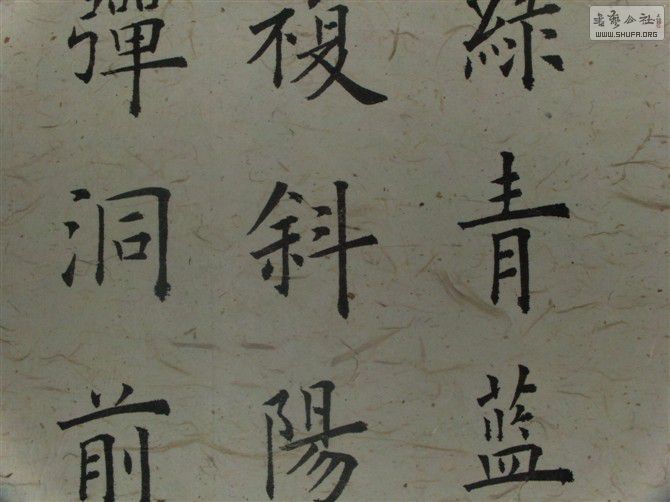 綠青蓝
複斜陽
彈洞前
书艺公社
WWW.SHUFA.ORG